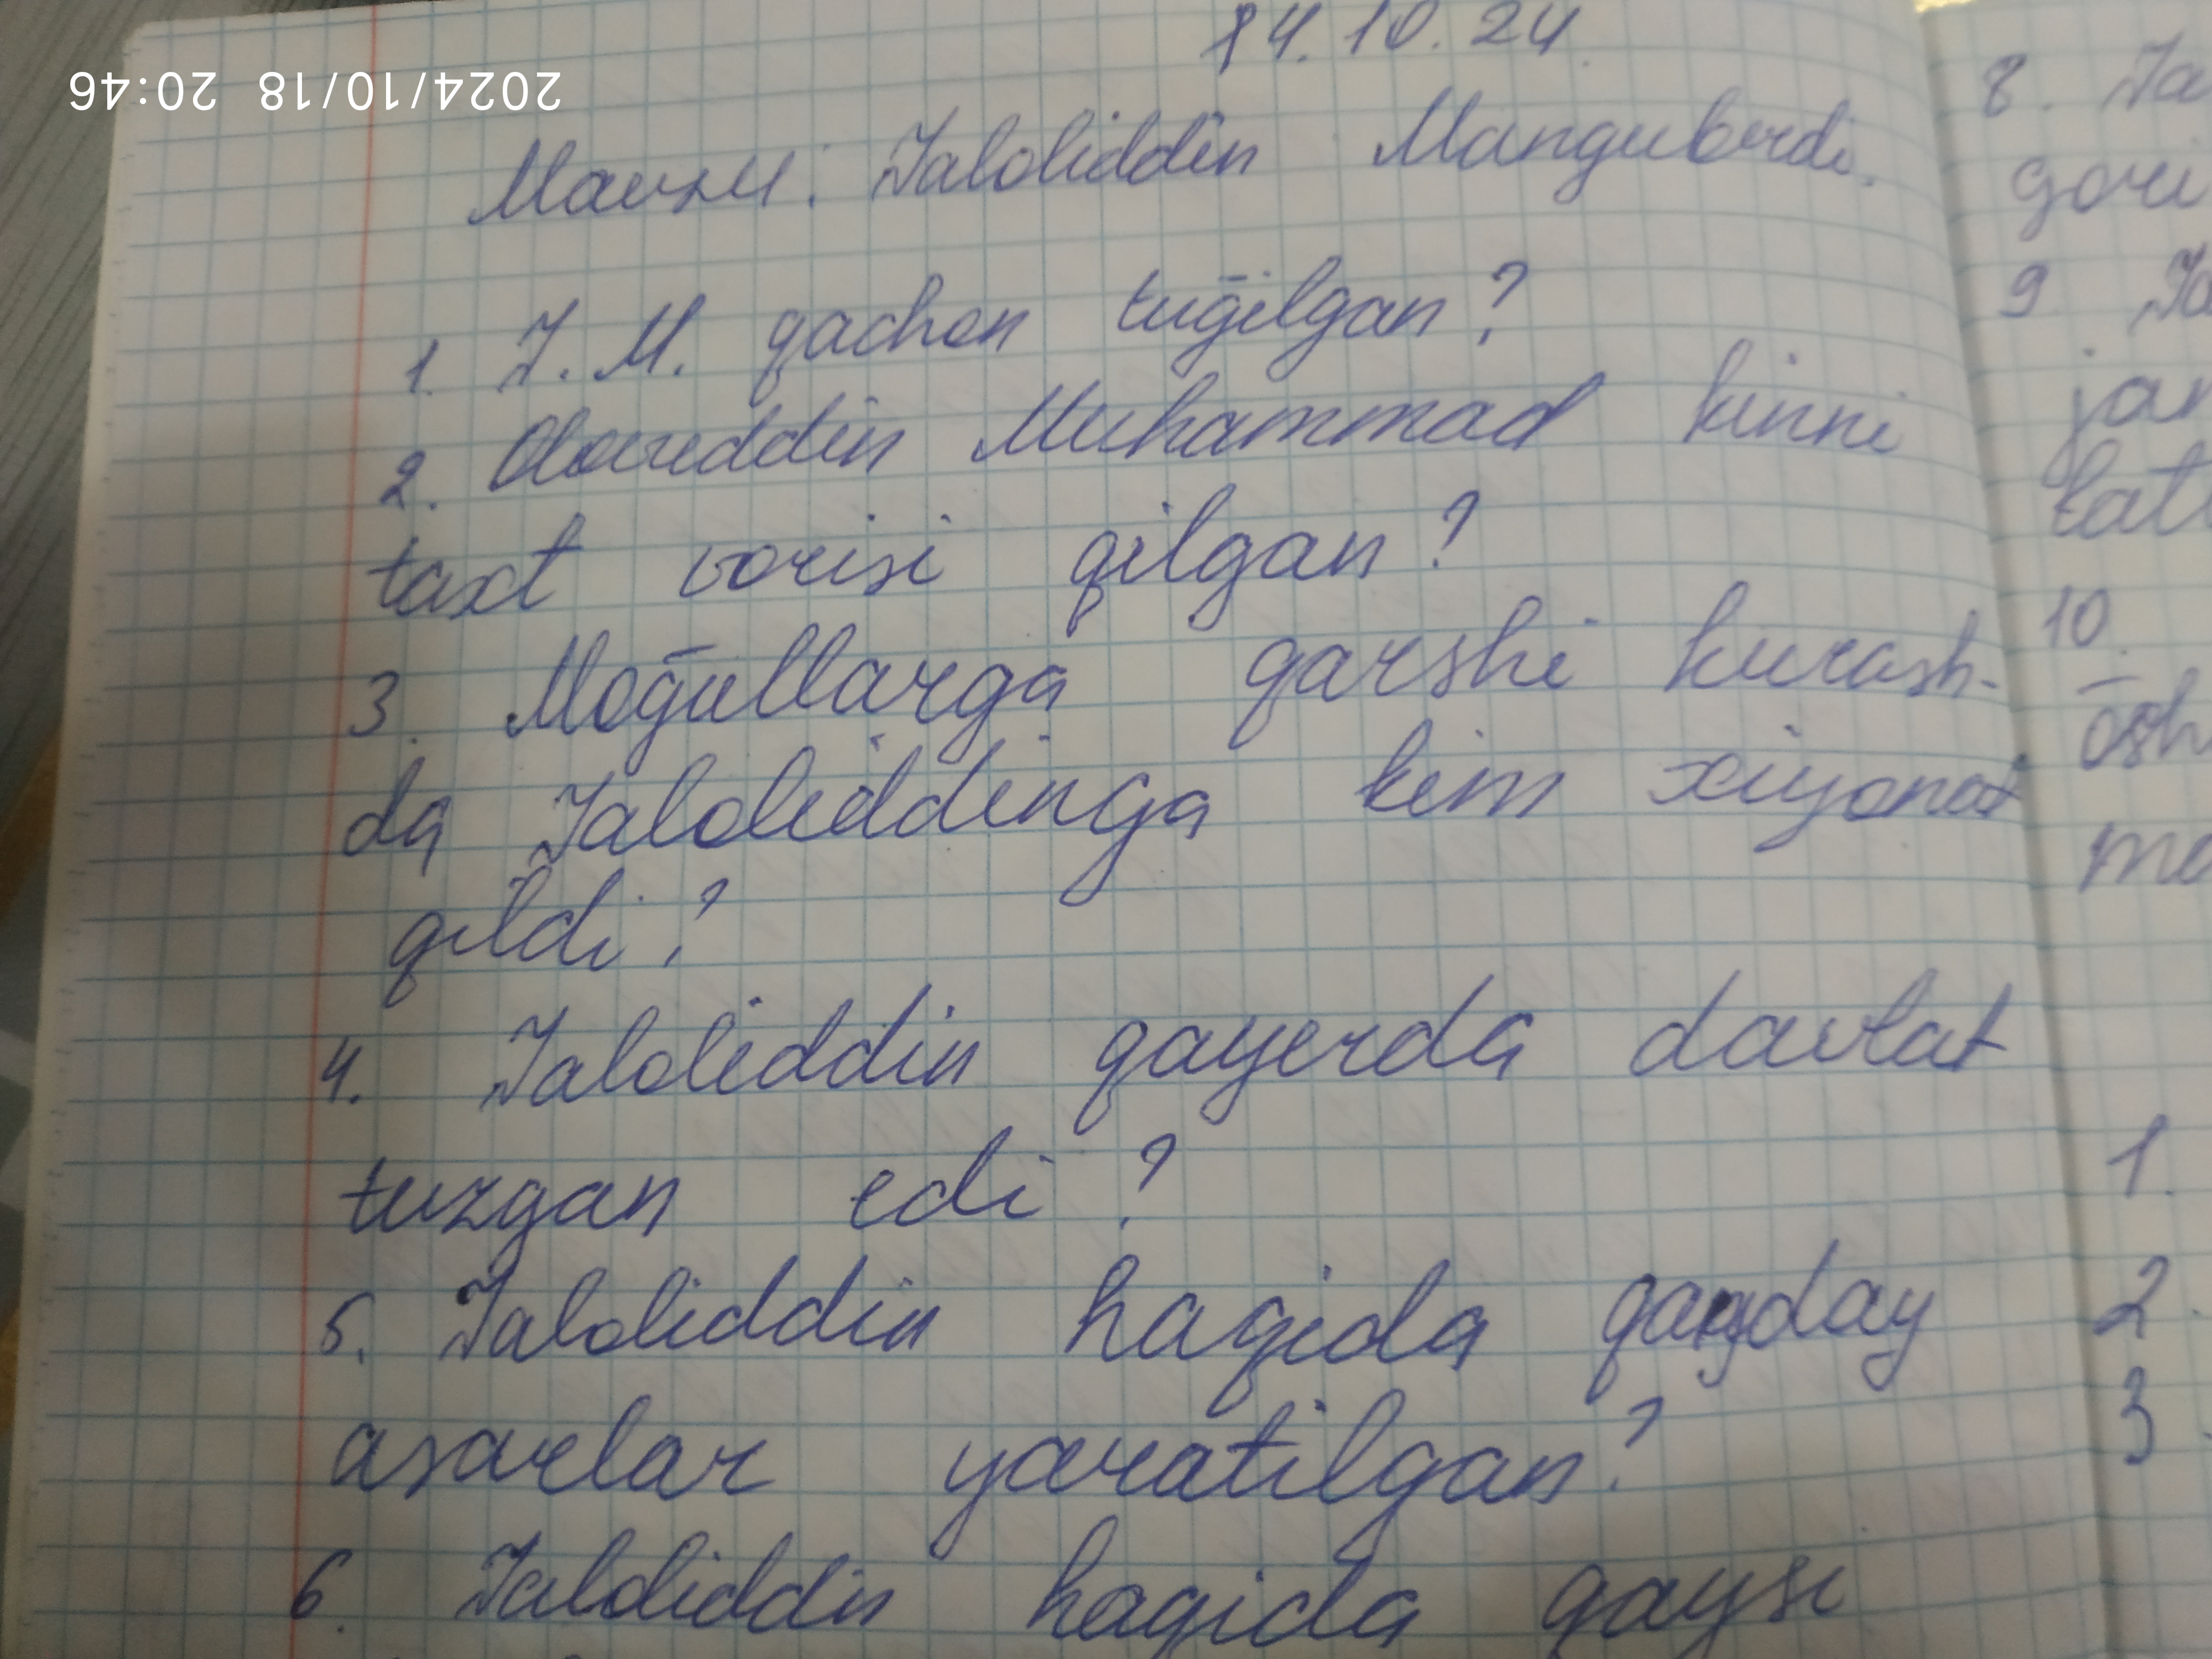 14.10.24
Mavzu: Jaloliddin Manguberdi.
1. J. M. qachon tug̅ilgan?
2. Alovuddin Muhammad kimni
taxt vorisi qilgan?
3. Mog̅ullarga qarshi kurash-
da Jaloliddinga kim xiyonat
qildi?
4. Jaloliddin qayerda davlat
tuzgan edi?
5. Jaloliddin haqida qanday
asarlar yaratilgan?
6. Jaloliddin haqida qaysi
8. Ja
9. Ja
10
1.
2
3
2024/10/18 20:46